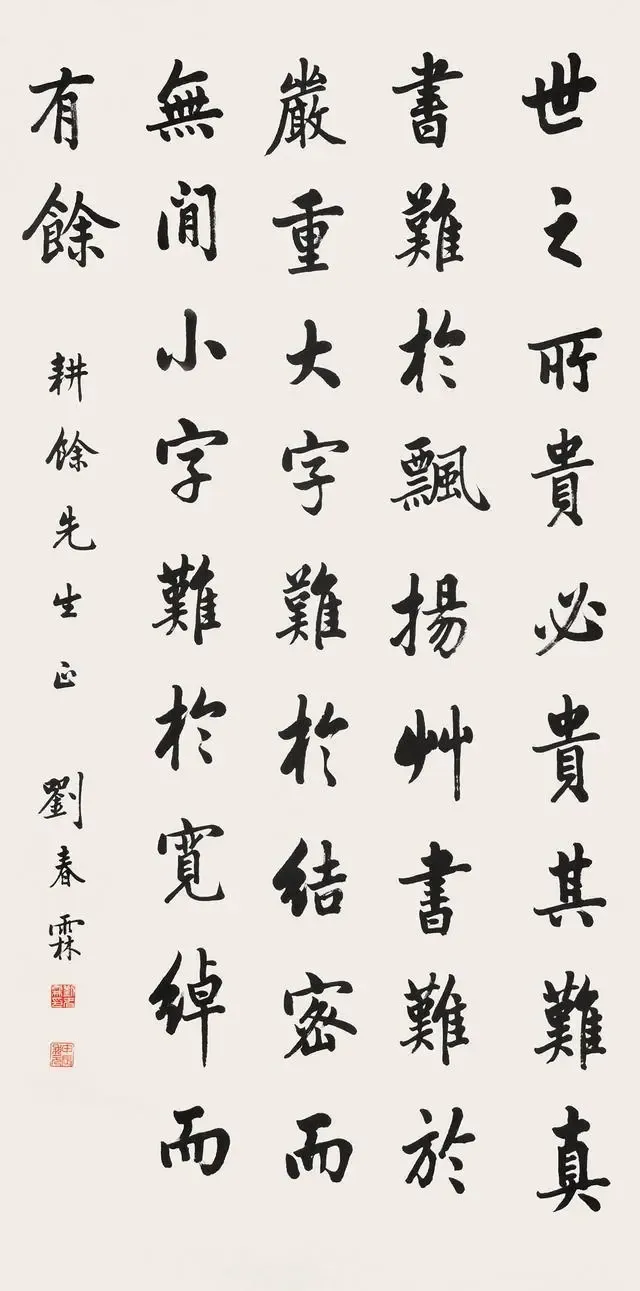 世之所貴必貴其難真
書難於飄揚艸書難於
嚴重大字難於結密而
無間小字難於寬綽而
有餘
耕餘先生正
劉春霖